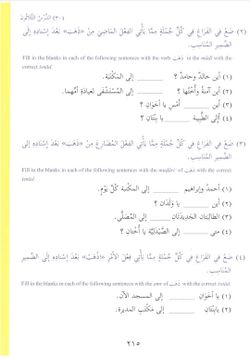 (٣٠) الدَّرْسُ الثَّلاثُونَ
(٢) ضَعْ فِي الفَرَاغِ فِي كُلِّ جُمْلَةٍ مِمَّا يَأْتِي الفِعْلَ المَاضِيَ مِنْ «ذَهَبَ» بَعْدَ إِسْنَادِهِ إِلَى
الضَّمِيرِ المُنَاسِبِ.
Fill in the blanks in each of the following sentences with the verb ذَهَبَ in the mādī with the
correct isnād.
(١) أين خالدٌ وحامدٌ ؟ ________ إلى المَكْتَبَةِ.
(٢) أين آمنةُ وأُخْتُها ؟ ________ إلى المُسْتَشْفَى لعِيَادَةِ أُمِّهما.
(٣) أين ________ أَمْسِ يا أَخَوانِ ؟
(٤) أَإِلَى الطَّبِيبَةِ ________ يا بِنْتَانِ ؟
(٣) ضَعْ فِي الفَرَاغِ فِي كُلِّ جُمْلَةٍ مِمَّا يَأْتِي الفِعْلَ المُضَارِعَ مِنْ «ذَهَبَ» بَعْدَ إِسْنَادِهِ إِلَى
الضَّمِيرِ المُنَاسِبِ.
Fill in the blanks in each of the following sentences with the mudāri‘ of ذَهَبَ with the correct
isnād.
(١) أحمدُ وإبراهيم ________ إلى المكتبة كُلَّ يَوْمٍ.
(٢) أين ________ يا وَلَدَانِ ؟
(٣) الطالِبتانِ الجَدِيدَتَانِ ________ إلى المُصَلَّى.
(٤) متى ________ إلى الصَّيْدَلِيَّةِ يا أُخْتَانِ ؟
(٤) ضَعْ فِي الفَرَاغِ فِي كُلِّ جُمْلَةٍ مِمَّا يَأْتِي فِعْلَ الأَمْرِ «اذْهَبْ» بَعْدَ إِسْنَادِهِ إِلَى الضَّمِيرِ
المُنَاسِبِ.
Fill in the blanks in each of the following sentences with the amr of ذَهَبَ with the correct isnād.
(١) يا أَخَوَانِ ________ إلى المسجد الآنَ.
(٢) يابِنْتَانِ ________ إلى مَكْتَبِ المديرة.
٢١٥